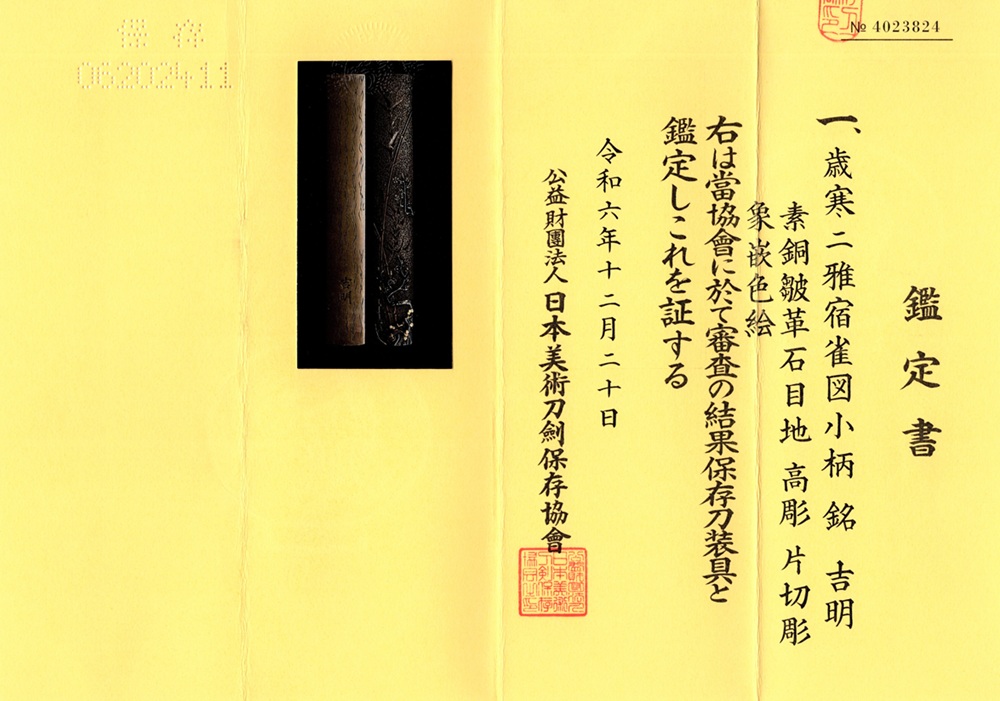 鑑定書
№ 4023824
一、歳寒二雅宿雀図小柄 銘 吉明
素銅皺革石目地 高彫 片切彫
象嵌色絵
右は當協會に於て審査の結果保存刀装具と
鑑定しこれを証する
令和六年十二月二十日
公益財團法人日本美術刀劍保存協會
保存
06202411
吉明